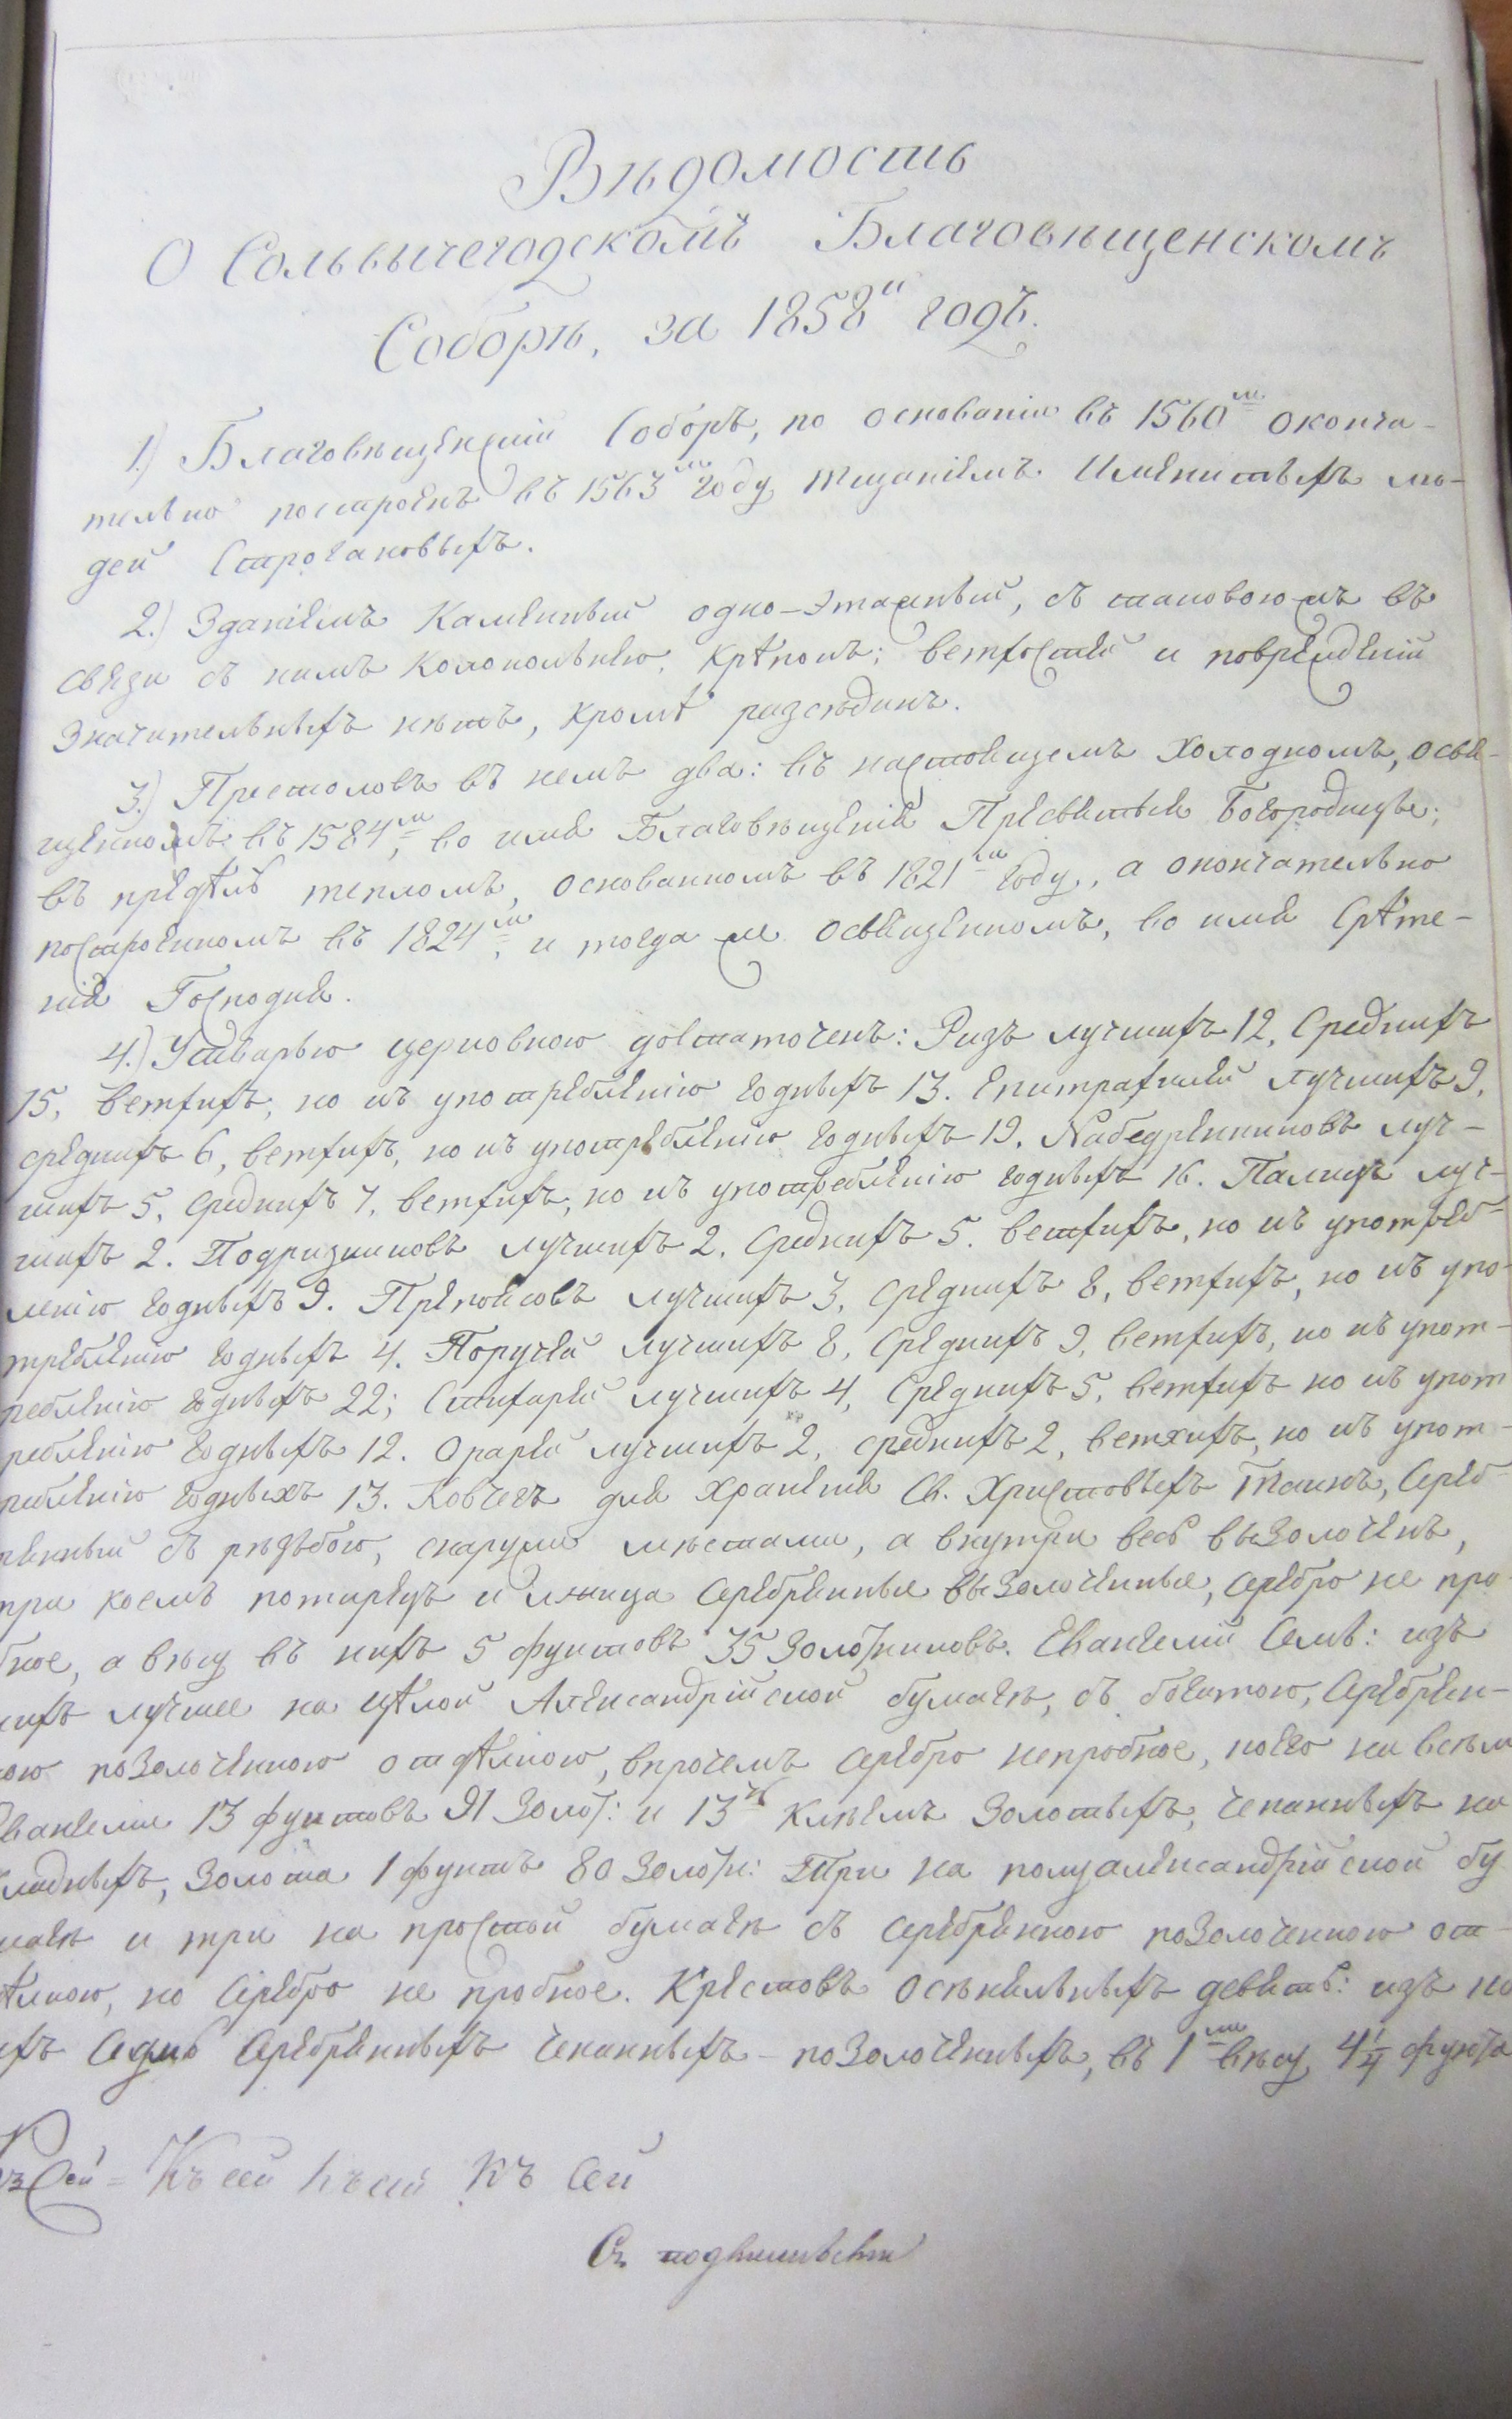 Вѣдомость
О Сольвычегодскомъ Благовѣщенскомъ
Соборѣ, за 1858й годъ.
1.) Благовѣщенскій Соборъ, по основаніи въ 1560м оконча-
тельно построенъ въ 1563м году тщаніемъ Именитыхъ лю-
дей Строгановыхъ.
2.) Зданіемъ Каменный одно-этажный, съ таковою жъ въ
связи съ нимъ Колокольнею, крѣпокъ; ветхостей и поврежденій
значительныхъ нѣтъ, кромѣ разсѣдинъ.
3.) Престоловъ въ немъ два: въ настоящемъ Холодномъ, освя-
щенномъ въ 1584м, во имя Благовѣщенія Пресвятыя Богородицы;
въ предѣлѣ тепломъ, основанномъ въ 1821м году, а окончательно
построенномъ въ 1824м, и тогда же освященномъ, во имя Срѣте-
нія Господня.
4.) Утварью церковною достаточенъ: Ризъ лучшихъ 12, Среднихъ
15, ветхихъ, но къ употребленію годныхъ 13. Епитрахилей лучшихъ 9,
среднихъ 6, ветхихъ, но къ употребленію годныхъ 19. Набедренниковъ луч-
шихъ 5, Среднихъ 7, ветхихъ, но къ употребленію годныхъ 16. Палицъ луч-
шихъ 2. Подризниковъ лучшихъ 2. Среднихъ 5. ветхихъ, но къ употреб-
ленію годныхъ 9. Препоясовъ лучшихъ 3, Среднихъ 8, ветхихъ, но къ упо-
требленію годныхъ 4. Поручей лучшихъ 8, Среднихъ 9, ветхихъ, но къ упот-
ребленію годныхъ 22; Стихарей лучшихъ 4, Среднихъ 5, ветхихъ но къ упот
ребленію годныхъ 12. Орарей лучшихъ 2, среднихъ 2, ветхихъ, но къ упот-
ребленію годныхъ 13. Ковчегъ для храненія Св. Христовыхъ Таинъ, Сереб
ренный съ рѣзьбою, снаружи мѣстами, а внутри весь вызолоченъ,
при коемъ потирецъ и лжица Серебренные вызолоченные, серебро не про-
бное, а вѣсу въ нихъ 5 фунтовъ 35 Золотниковъ. Евангелій Семь: изъ
нихъ лучшее на цѣлой Александрійской бумагѣ, съ богатою, Серебрен-
ною позолоченною отдѣлкою, впрочемъ серебро непробное, коего на всѣм
Евангеліи 13 фунтовъ 91 Золот: и 13ть Клеймъ Золотыхъ, чеканныхъ на
кладныхъ, Золота 1 фунтъ 80 Золотн: Три на полуалександрійской бу
магѣ и три на простой бумагѣ съ серебренною позолоченною от-
дѣлкою, но Серебро не пробное. Крестовъ осѣняльныхъ девять: изъ ко
ихъ Седмь Серебренныхъ чеканныхъ - позолоченныхъ, въ 1м вѣсу 4¼ фунта
къ Сей = Къ сей Къ сей Къ Сей